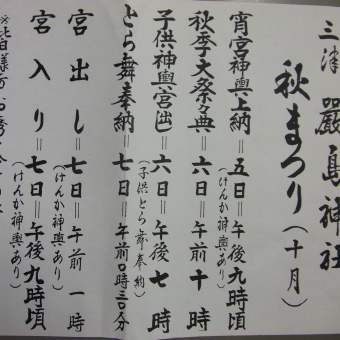 三津 嚴島神社
秋まつり(十月)
宵宮神輿上納=五日=午後九時頃
(けんか神輿あり)
秋季大祭典=六日=午前十時
子供神輿宮出=六日=午後七時
(子供とら舞奉納)
とら舞奉納=七日=午前0時三0分
宮出し=七日=午前一時
(けんか神輿あり)
宮入り=七日=午後九時頃
(けんか神輿あり)
※皆様方お誘